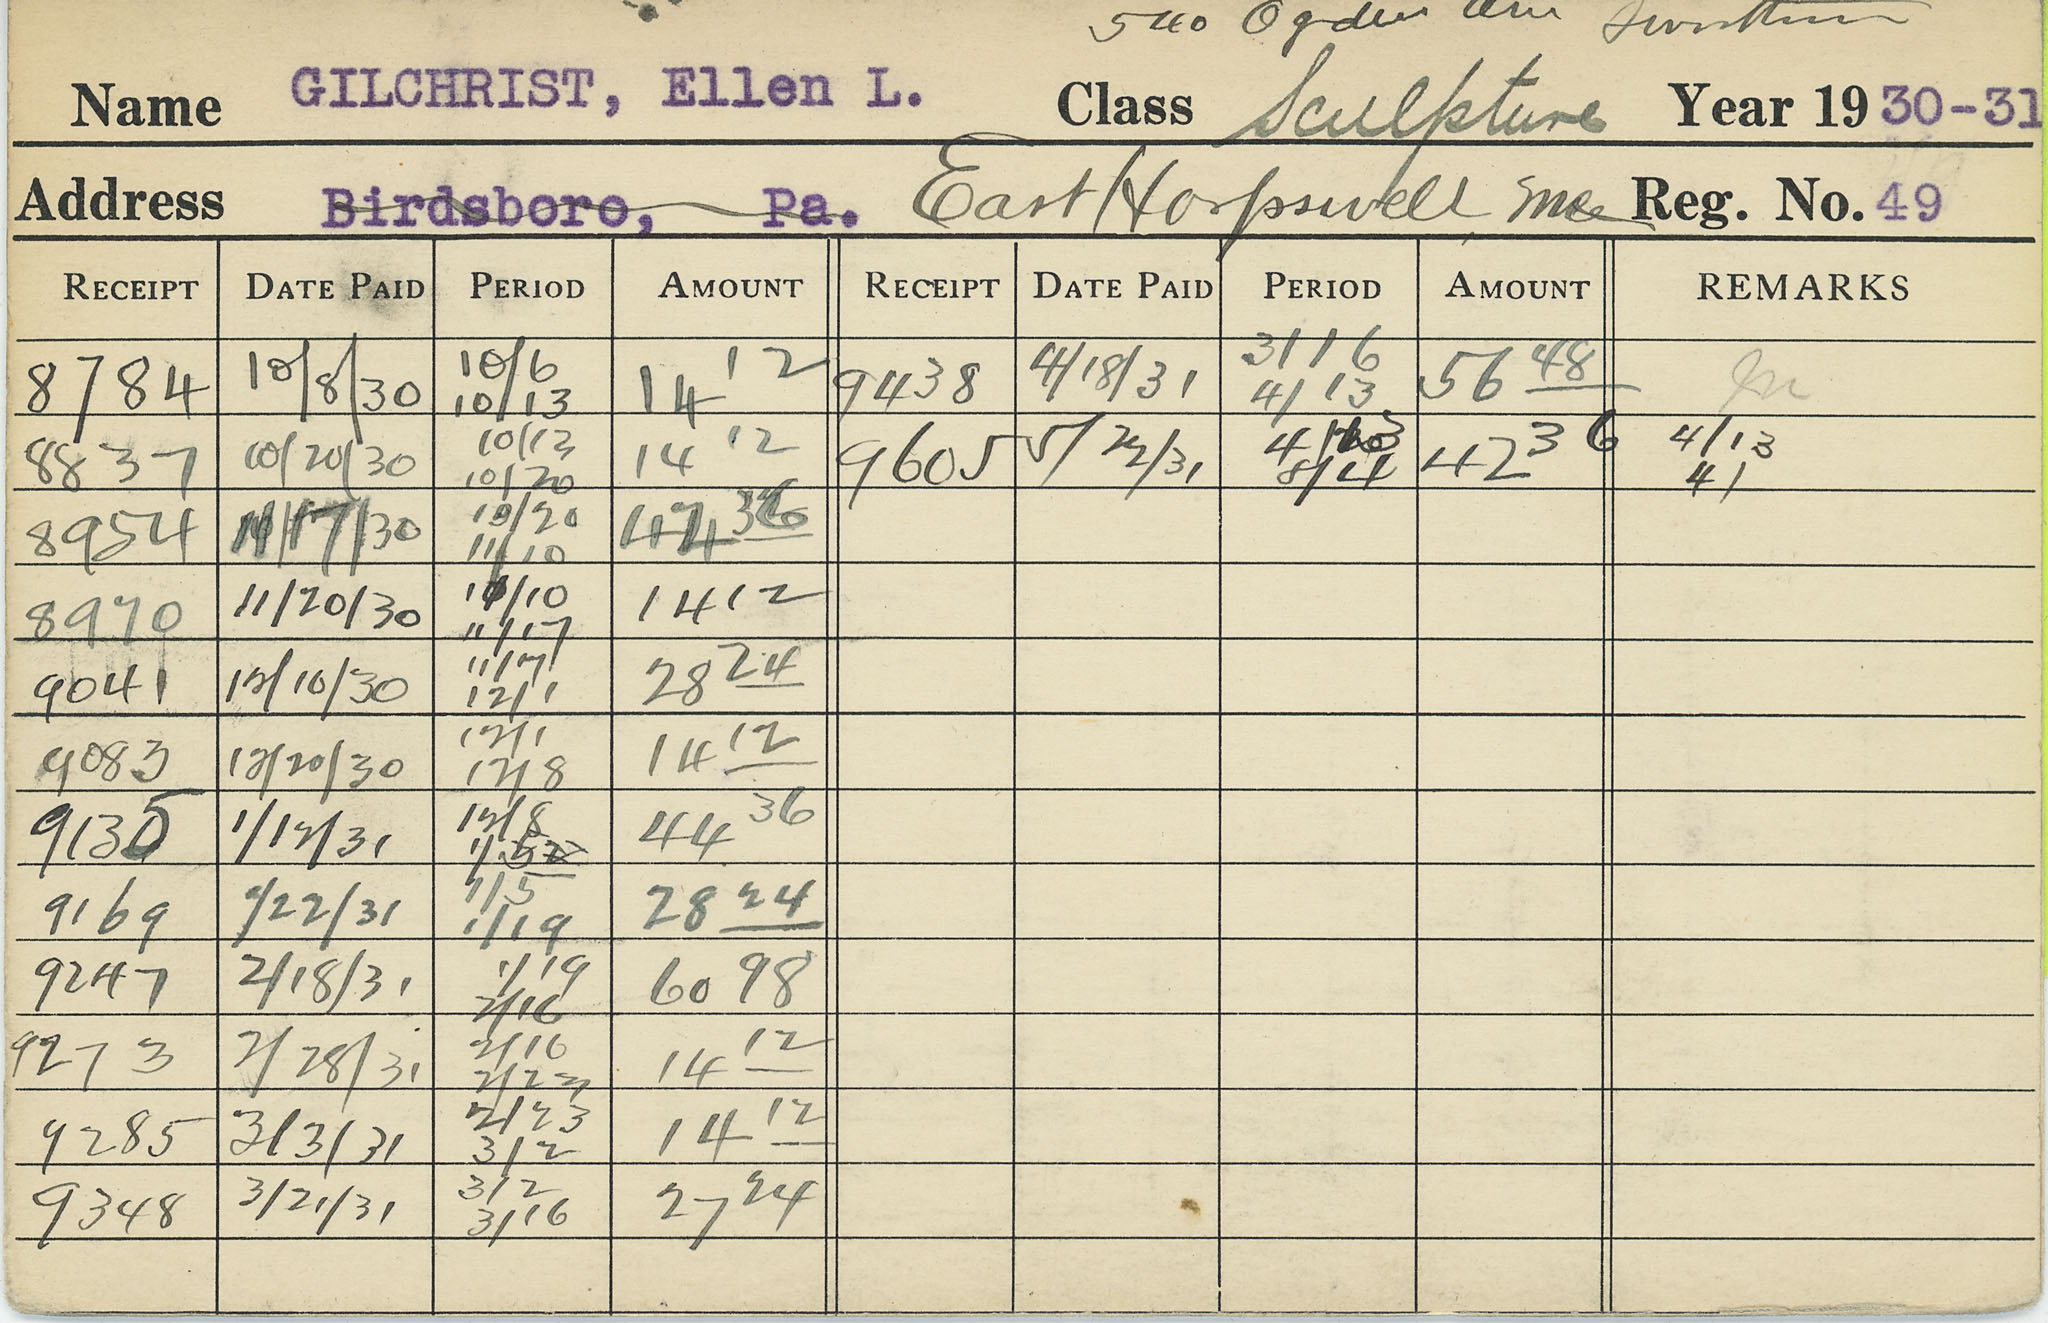 540 Ogden Ave Swarthmore
Name GILCHRIST, Ellen L. Class Sculpture Year 19 30-31
Address Birdsboro, Pa. East Harpswell Me Reg. No. 49
RECEIPT DATE PAID PERIOD AMOUNT RECEIPT DATE PAID PERIOD AMOUNT REMARKS
8784 10/8/30 10/6 10/13 14 12 9438 4/18/31 3/16 4/13 56 48
8837 10/20/30 10/13 10/20 14 12 9605 5/22/31 42 36 4/13
8954 11/17/30 10/20 11/10 36
8970 11/20/30 11/10 11/17 14 12
9041 12/10/30 11/17 12/1 28 24
9083 12/20/30 12/1 12/8 14 12
9135 1/12/31 12/8 1/5 44 36
9169 1/22/31 1/5 1/19 28 24
9247 2/18/31 1/19 2/16 60 98
9273 2/28/31 2/16 2/23 14 12
9285 3/3/31 2/23 3/2 14 12
9348 3/21/31 3/2 3/16 27 24